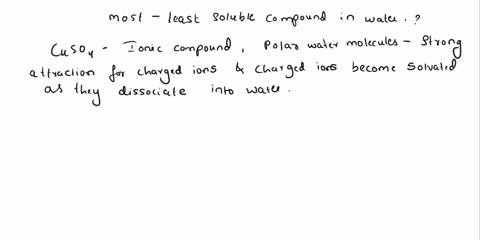 most - least soluble compound in water. ?
CuSO4 - Ionic compound, Polar water molecules - Strong
attraction for charged ions & charged ions become solvated
as they dissociate into water.